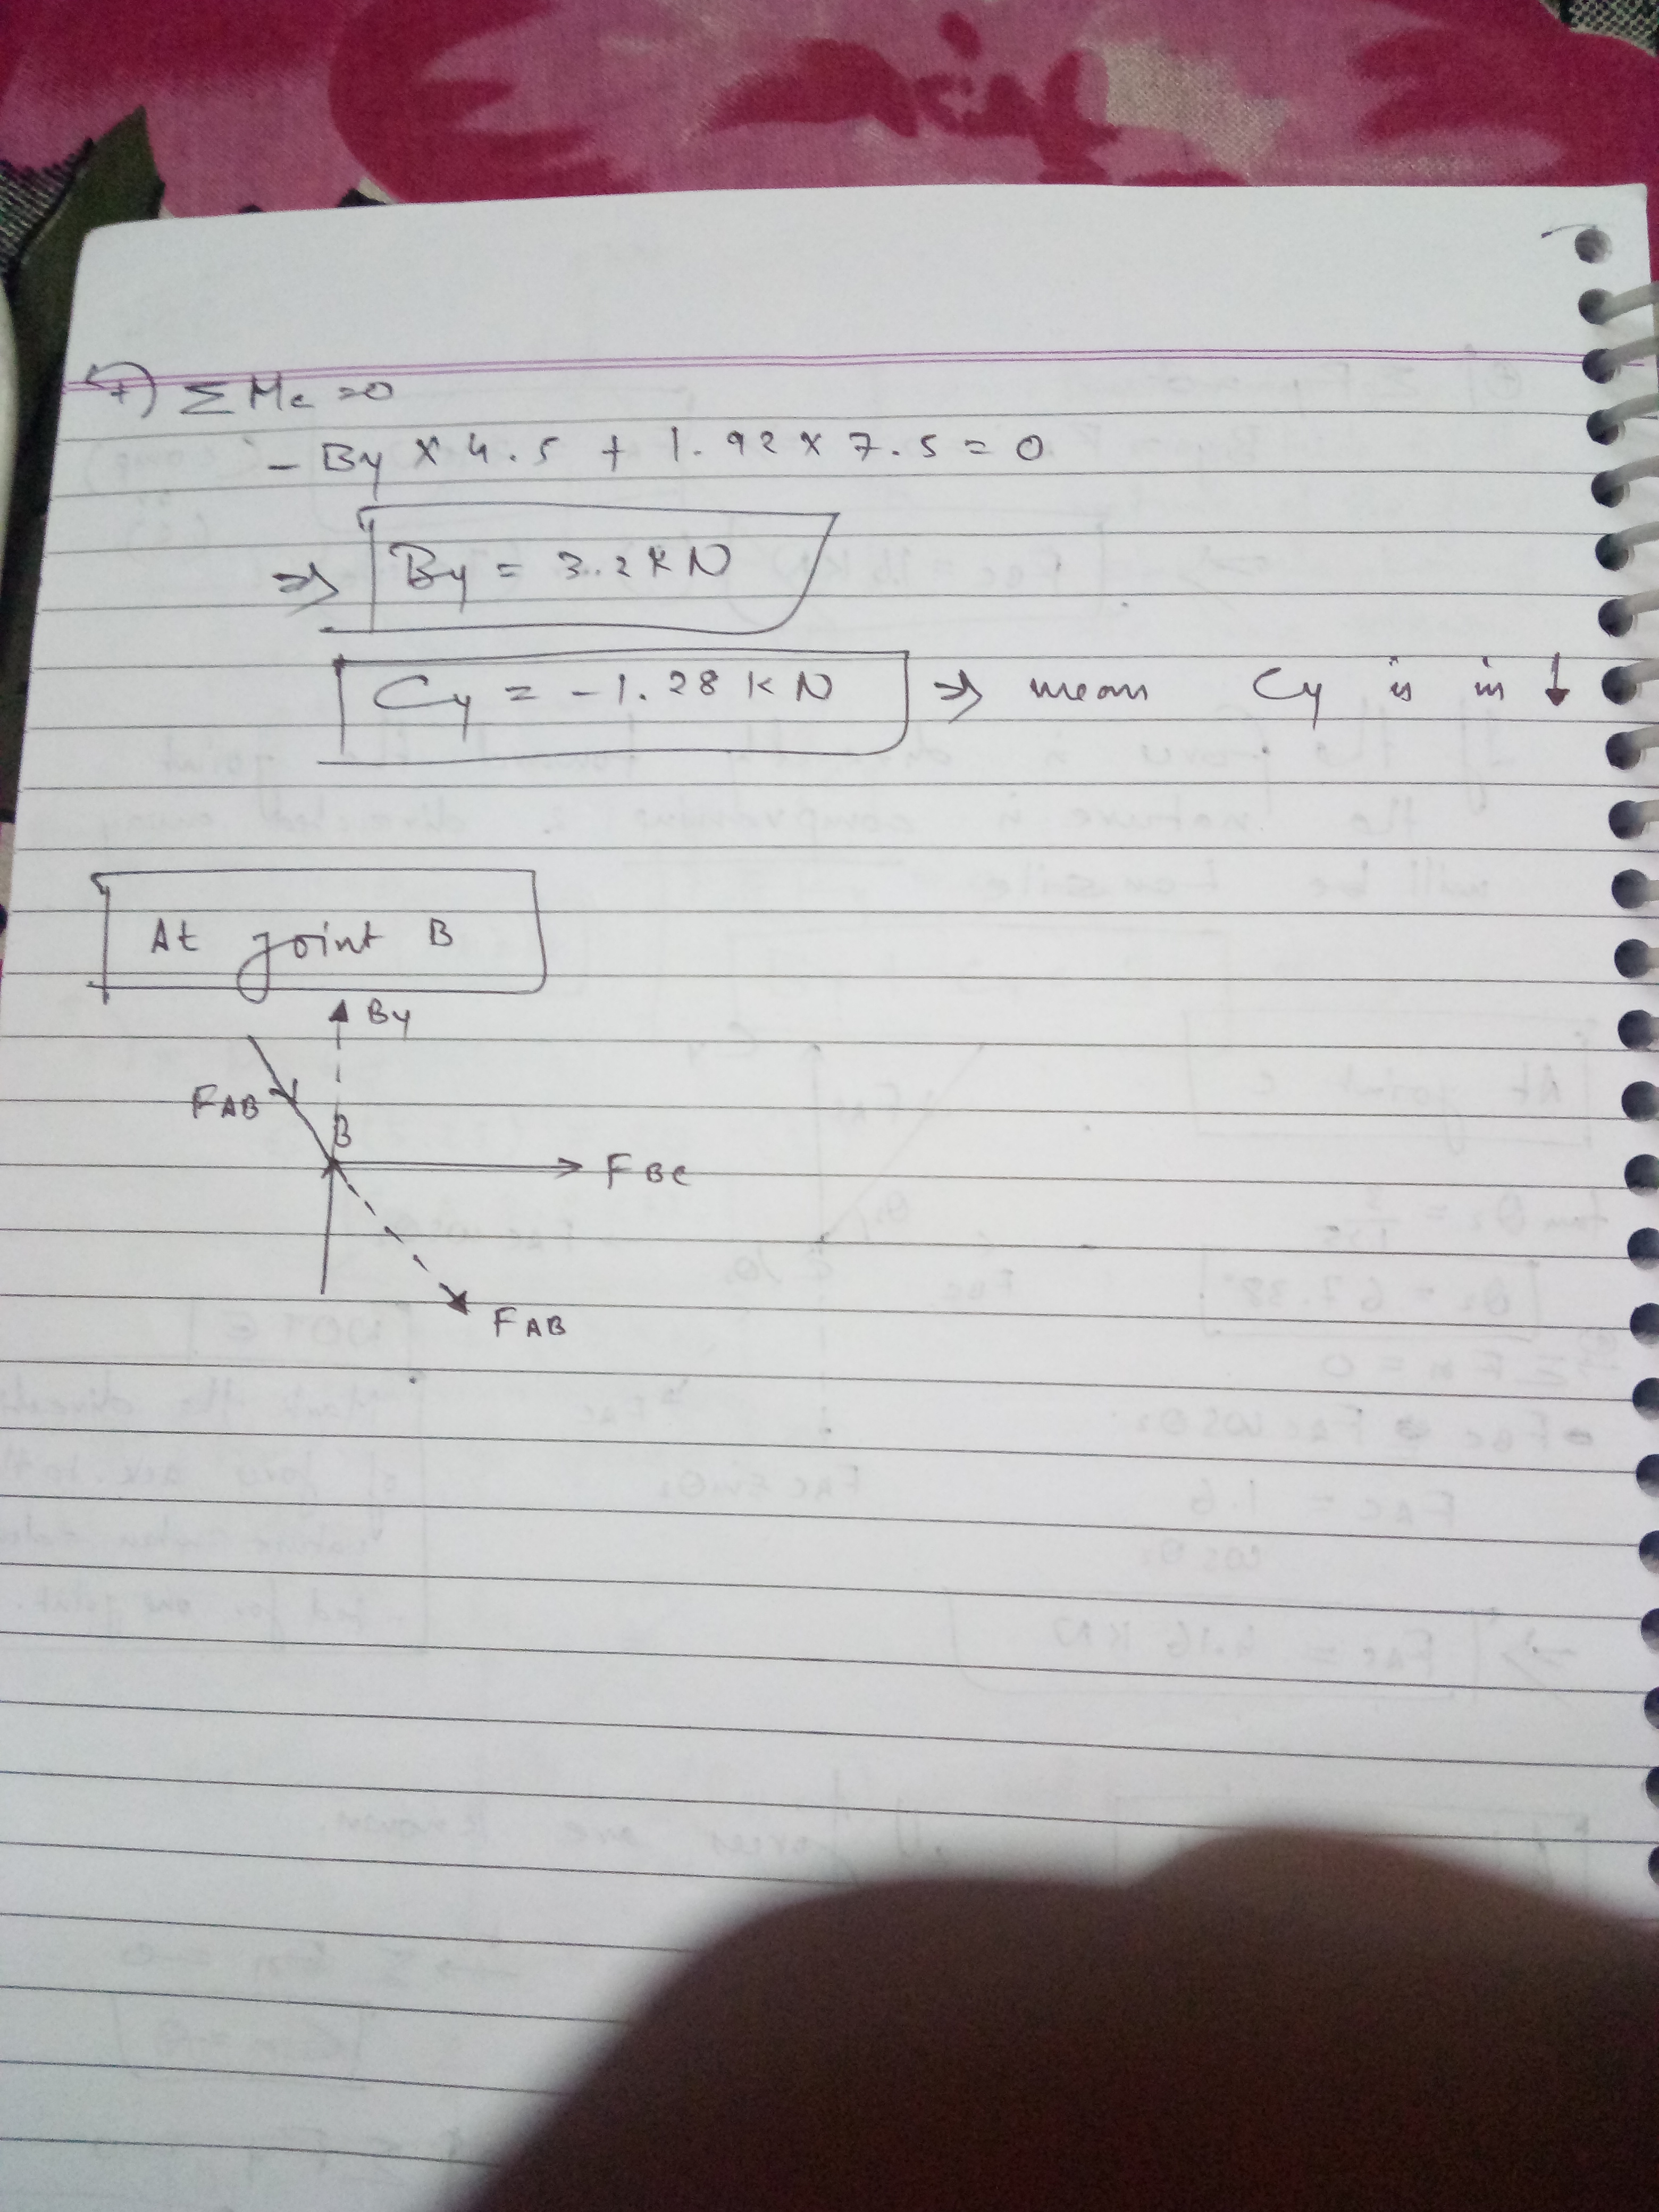 +) ΣMc =0
- By × 4.5 + 1.92 × 7.5 = 0
⇒ By = 3.2 KN
Cy = -1.28 KN ⇒ mean Cy is in ↓
At joint B
By
FAB
B
FBC
FAB